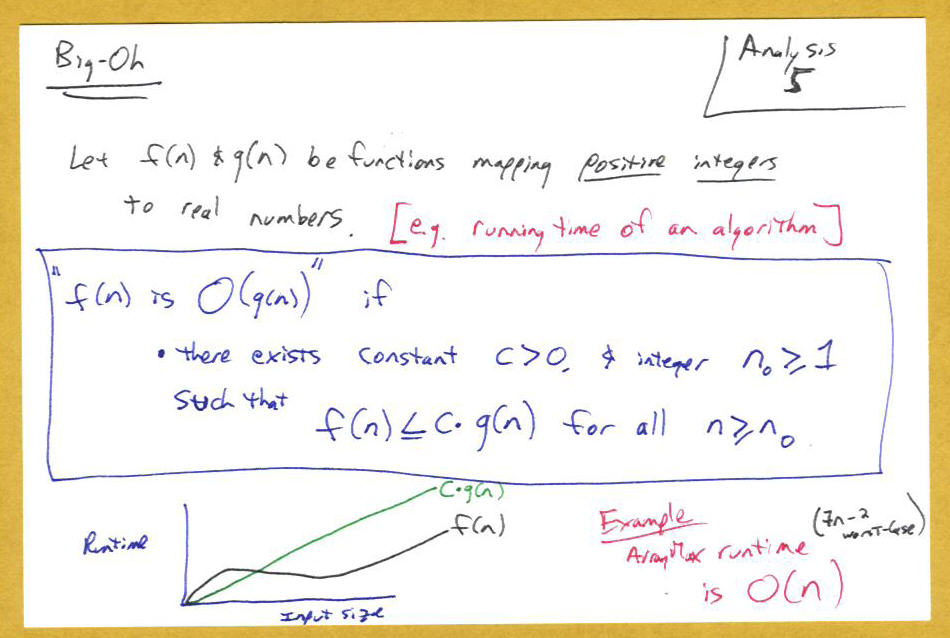 Big-Oh
Analysis
5
Let f(n) & g(n) be functions mapping positive integers
to real numbers. [e.g. running time of an algorithm]
"f(n) is O(g(n))" if
• there exists constant c>0, & integer n₀≥1
such that
f(n)≤c·g(n) for all n≥n₀
C·g(n)
f(n)
Runtime
Input size
Example
(7n-2
worst-case)
ArrayMax runtime
is O(n)